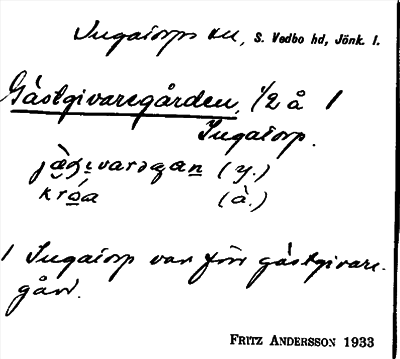 Ingatorps sn, S. Vedbo hd, Jönk. l.
Gästgivaregården, 1/2 å 1
Ingatorp.
(y.)
(ä.)
1 Ingatorp var förr gästgivare-
gård.
FRITZ ANDERSSON 1933